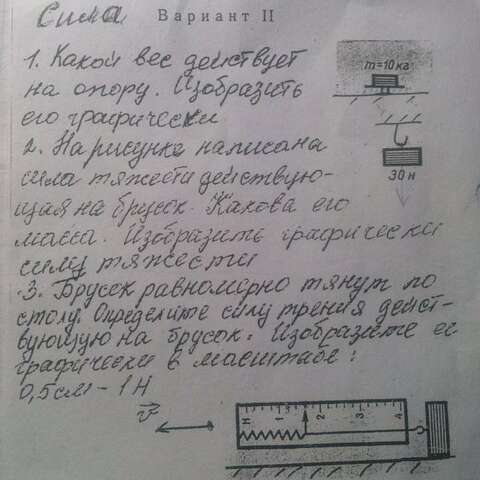 Сила Вариант II
1. Какой вес действует
на опору. Изобразить
его графически
m=10 кг
2. На рисунке написана
сила тяжести действую-
щая на брусок. Какова его
масса. Изобразить графически
силу тяжести
30 н
3. Брусок равномерно тянут по
столу. Определите силу трения дейст-
вующую на брусок. Изобразите её
графически в масштабе:
0,5 см – 1 Н
v
Н 1 2 3 4